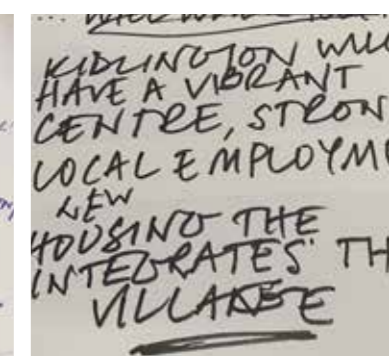 KIDLINGTON WILL
HAVE A VIBRANT
CENTRE, STRON
LOCAL EMPLOYM
NEW
HOUSING THE
INTEGRATES' TH
VILLAGE